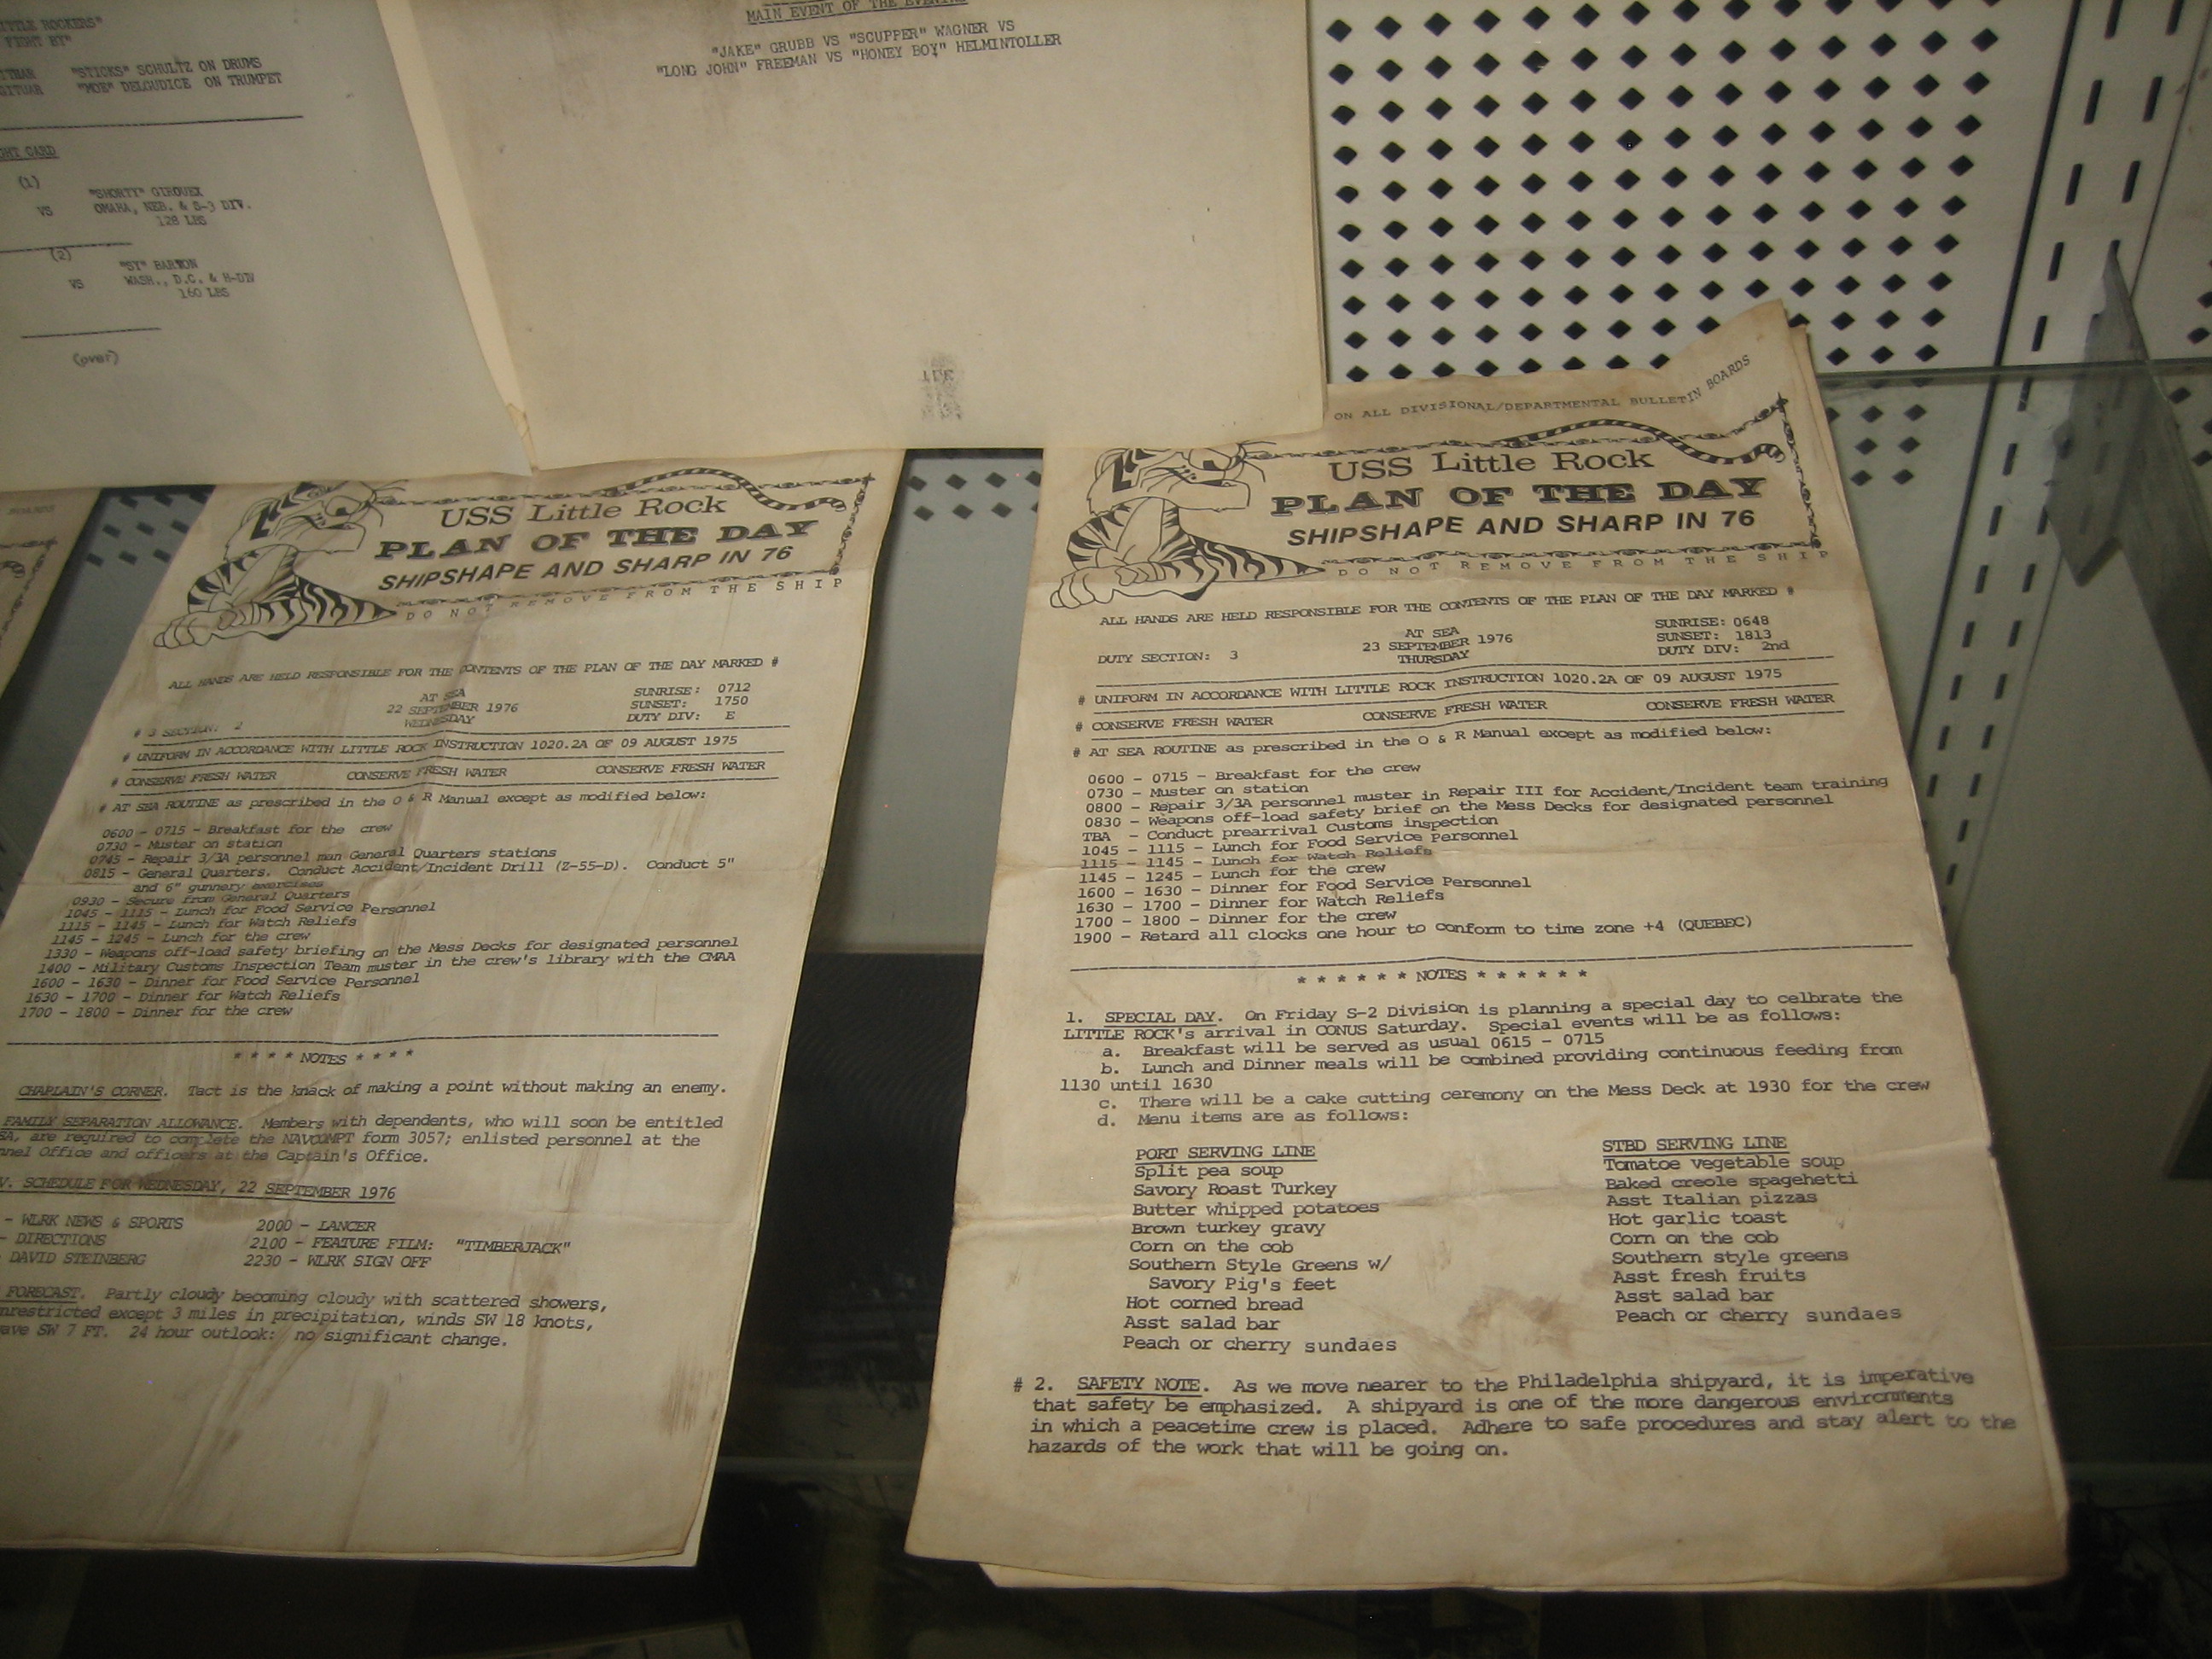 TTLE ROCKERS"
FIGHT BY"
"STICKS" SCHULTZ ON DRUMS
"MOE" DELGUDICE ON TRUMPET
GHT CARD
(1)
"SHORTY" GIROUEX
VS OMAHA, NEB. & S-3 DIV.
128 LBS
(2)
"SY" BARTON
VS WASH., D.C. & H-DIV
160 LBS
(over)
MAIN EVENT OF THE EVENING
"JAKE" GRUBB VS "SCUPPER" WAGNER VS
"LONG JOHN" FREEMAN VS "HONEY BOY" HELMINTOLLER
USS Little Rock
PLAN OF THE DAY
SHIPSHAPE AND SHARP IN 76
DO NOT REMOVE FROM THE SHIP
ALL HANDS ARE HELD RESPONSIBLE FOR THE CONTENTS OF THE PLAN OF THE DAY MARKED #
AT SEA SUNRISE: 0712
22 SEPTEMBER 1976 SUNSET: 1750
# 3 SECTION: 2 WEDNESDAY DUTY DIV: E
# UNIFORM IN ACCORDANCE WITH LITTLE ROCK INSTRUCTION 1020.2A OF 09 AUGUST 1975
# CONSERVE FRESH WATER CONSERVE FRESH WATER CONSERVE FRESH WATER
# AT SEA ROUTINE as prescribed in the O & R Manual except as modified below:
0600 - 0715 - Breakfast for the crew
0730 - Muster on station
0745 - Repair 3/3A personnel man General Quarters stations
0815 - General Quarters. Conduct Accident/Incident Drill (Z-55-D). Conduct 5"
and 6" gunnery exercises
0930 - Secure from General Quarters
1045 - 1115 - Lunch for Food Service Personnel
1115 - 1145 - Lunch for Watch Reliefs
1145 - 1245 - Lunch for the crew
1330 - Weapons off-load safety briefing on the Mess Decks for designated personnel
1400 - Military Customs Inspection Team muster in the crew's library with the CMAA
1600 - 1630 - Dinner for Food Service Personnel
1630 - 1700 - Dinner for Watch Reliefs
1700 - 1800 - Dinner for the crew
* * * * NOTES * * * *
CHAPLAIN'S CORNER. Tact is the knack of making a point without making an enemy.
FAMILY SEPARATION ALLOWANCE. Members with dependents, who will soon be entitled
SA, are required to complete the NAVCOMPT form 3057; enlisted personnel at the
nnel Office and officers at the Captain's Office.
V. SCHEDULE FOR WEDNESDAY, 22 SEPTEMBER 1976
- WLRK NEWS & SPORTS 2000 - LANCER
- DIRECTIONS 2100 - FEATURE FILM: "TIMBERJACK"
- DAVID STEINBERG 2230 - WLRK SIGN OFF
FORECAST. Partly cloudy becoming cloudy with scattered showers,
nrestricted except 3 miles in precipitation, winds SW 18 knots,
ave SW 7 FT. 24 hour outlook: no significant change.
ON ALL DIVISIONAL/DEPARTMENTAL BULLETIN BOARDS
USS Little Rock
PLAN OF THE DAY
SHIPSHAPE AND SHARP IN 76
DO NOT REMOVE FROM THE SHIP
ALL HANDS ARE HELD RESPONSIBLE FOR THE CONTENTS OF THE PLAN OF THE DAY MARKED #
AT SEA SUNRISE: 0648
23 SEPTEMBER 1976 SUNSET: 1813
DUTY SECTION: 3 THURSDAY DUTY DIV: 2nd
# UNIFORM IN ACCORDANCE WITH LITTLE ROCK INSTRUCTION 1020.2A OF 09 AUGUST 1975
# CONSERVE FRESH WATER CONSERVE FRESH WATER CONSERVE FRESH WATER
# AT SEA ROUTINE as prescribed in the O & R Manual except as modified below:
0600 - 0715 - Breakfast for the crew
0730 - Muster on station
0800 - Repair 3/3A personnel muster in Repair III for Accident/Incident team training
0830 - Weapons off-load safety brief on the Mess Decks for designated personnel
TBA - Conduct prearrival Customs inspection
1045 - 1115 - Lunch for Food Service Personnel
1115 - 1145 - Lunch for Watch Reliefs
1145 - 1245 - Lunch for the crew
1600 - 1630 - Dinner for Food Service Personnel
1630 - 1700 - Dinner for Watch Reliefs
1700 - 1800 - Dinner for the crew
1900 - Retard all clocks one hour to conform to time zone +4 (QUEBEC)
* * * * * * NOTES * * * * * *
1. SPECIAL DAY. On Friday S-2 Division is planning a special day to celbrate the
LITTLE ROCK's arrival in CONUS Saturday. Special events will be as follows:
a. Breakfast will be served as usual 0615 - 0715
b. Lunch and Dinner meals will be combined providing continuous feeding from
1130 until 1630
c. There will be a cake cutting ceremony on the Mess Deck at 1930 for the crew
d. Menu items are as follows:
PORT SERVING LINE STBD SERVING LINE
Split pea soup Tomatoe vegetable soup
Savory Roast Turkey Baked creole spagehetti
Butter whipped potatoes Asst Italian pizzas
Brown turkey gravy Hot garlic toast
Corn on the cob Corn on the cob
Southern Style Greens w/ Southern style greens
Savory Pig's feet Asst fresh fruits
Hot corned bread Asst salad bar
Asst salad bar Peach or cherry sundaes
Peach or cherry sundaes
# 2. SAFETY NOTE. As we move nearer to the Philadelphia shipyard, it is imperative
that safety be emphasized. A shipyard is one of the more dangerous environments
in which a peacetime crew is placed. Adhere to safe procedures and stay alert to the
hazards of the work that will be going on.